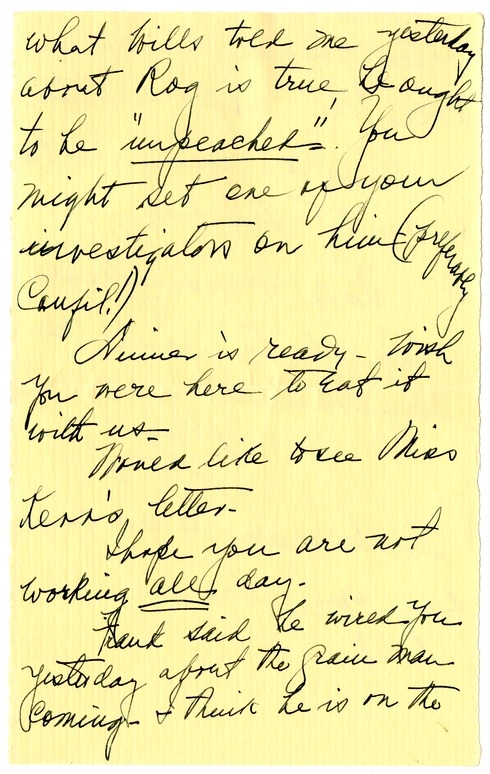 what Wills told me yesterday
about Rog is true, he ought
to be "impeached". You
might set one of your
investigators on him (preferably
Coupil!)
Dinner is ready - Wish
you were here to eat it
with us -
Would like to see Miss
Kerr's letter -
I hope you are not
working all day.
Frank said he wired you
yesterday about the grain man
coming - I think he is on the